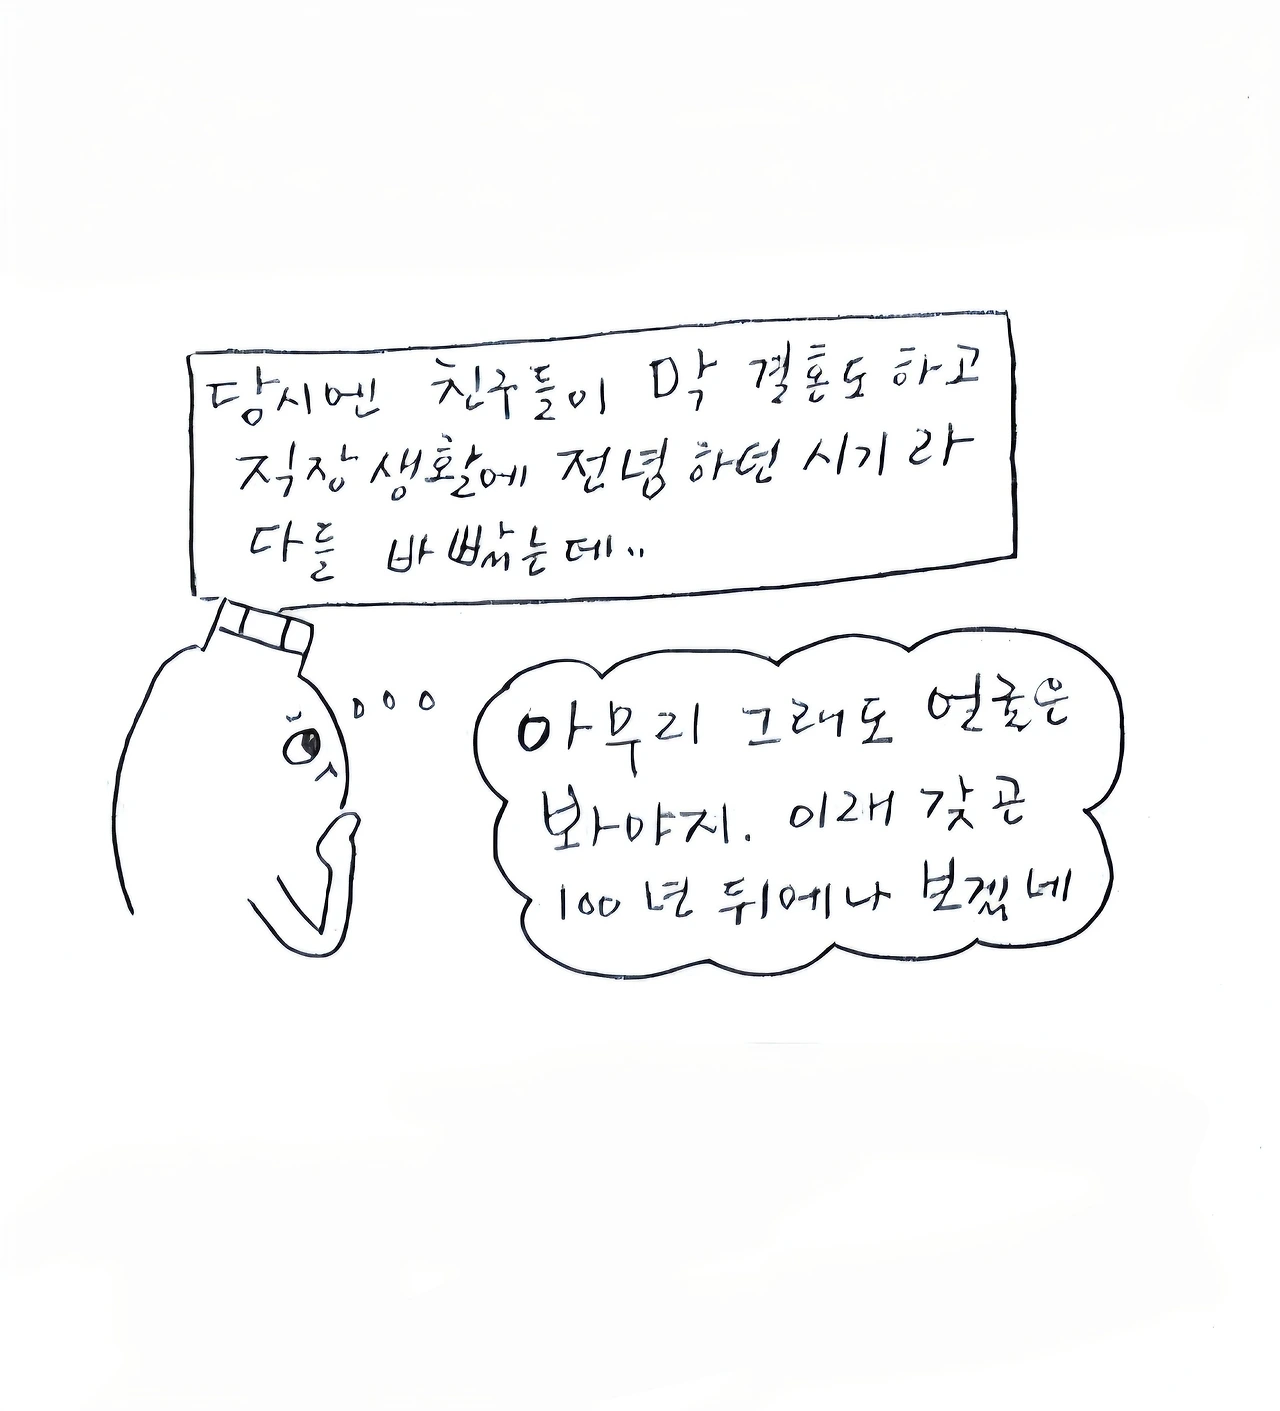 당시엔 친구들이 막 결혼도 하고
직장 생활에 전념하던 시기라
다들 바빴는데..
아무리 그래도 얼굴은
봐야지. 이래 갖곤
100년 뒤에나 보겠네